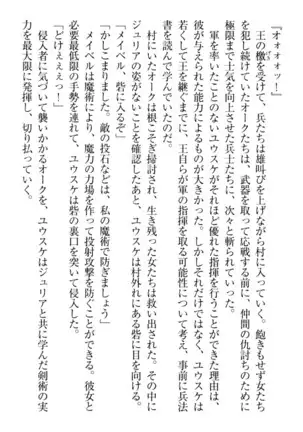 『オオオオッ！』
　王の檄を受けて、兵たちは雄叫びを上げながら村に入っていく。飽きもせず女たち
を犯し続けていたオークたちは、武器を取って応戦する前に、仲間の仇討ちのために
極限まで士気を向上させた兵士たちに、次々と斬られていった。
　軍を率いたことのないユウスケがそれほど優れた指揮を行うことができた理由は、
彼が与えられた能力によるものが大きかった。しかしそれだけではなく、ユウスケは
若くして王を継ぐまでに、王自らが軍の指揮を取る可能性について考え、事前に兵法
書を読んで学んでいたのだ。
　村にいたオークは根こそぎ掃討され、生き残った女たちは救い出された。その中に
ジュリアの姿がないことを確認したあと、ユウスケは村外れにある砦に目を向ける。
「メイベル、砦に入るぞ」
「かしこまりました。敵の投石などは、私の魔術で防ぎましょう」
　メイベルは魔術により、魔力の力場を作って投射攻撃を防ぐことができる。彼女と
必要最低限の手勢を連れて、ユウスケは砦の裏口を突いて侵入した。
「どけええぇっ！」
　侵入者に気づいて襲いかかるオークを、ユウスケはジュリアと共に学んだ剣術の実
力を最大限に発揮し、切り払っていく。